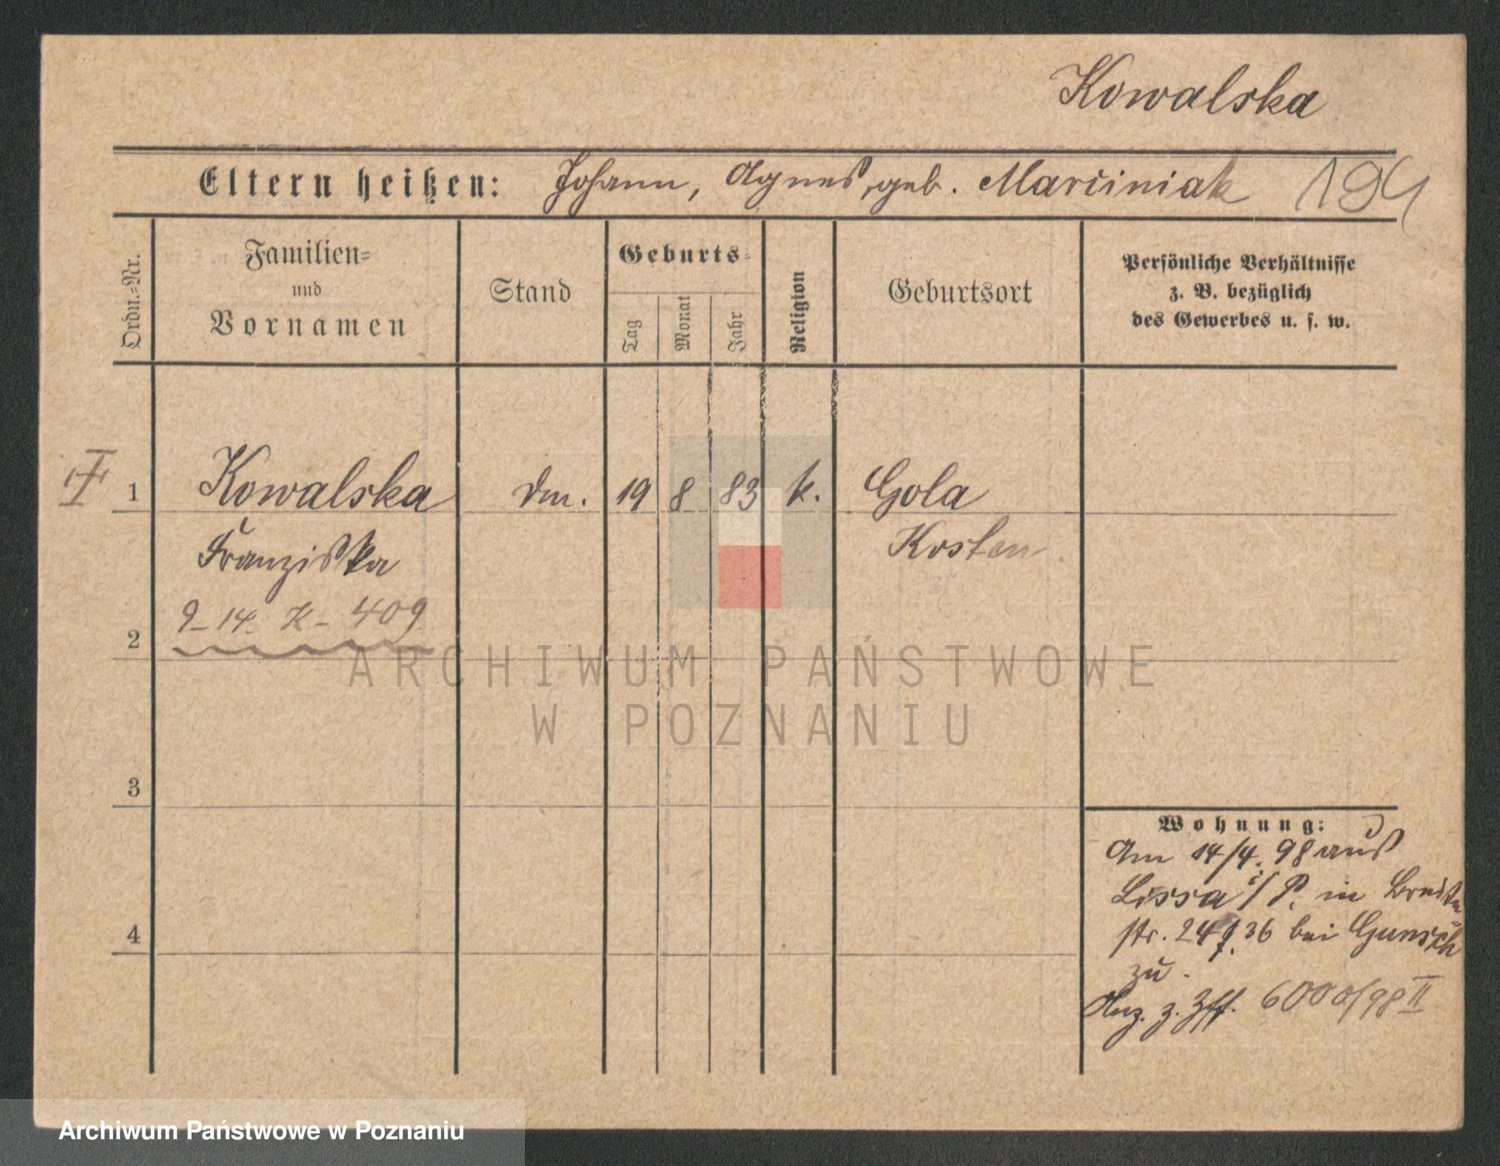 Kowalska
Eltern heißen: Johann, Agnes, geb. Marciniak 194
Ordn.-Nr.
Familien-
und
Vornamen
Stand
Geburts-
Tag
Monat
Jahr
Religion
Geburtsort
Persönliche Verhältnisse
z. B. bezüglich
des Gewerbes u. s. w.
1 Kowalska 19 8 83 k. Gola
Franziska Kosten
9-14. K- 409
2
ARCHIWUM PAŃSTWOWE
W POZNANIU
3
Wohnung:
Am 14/4. 98 aus
Lissa i/P. in
str. 24 36 bei Gunsch
4
zu.
Anz. z. 6000/98 II
Archiwum Państwowe w Poznaniu